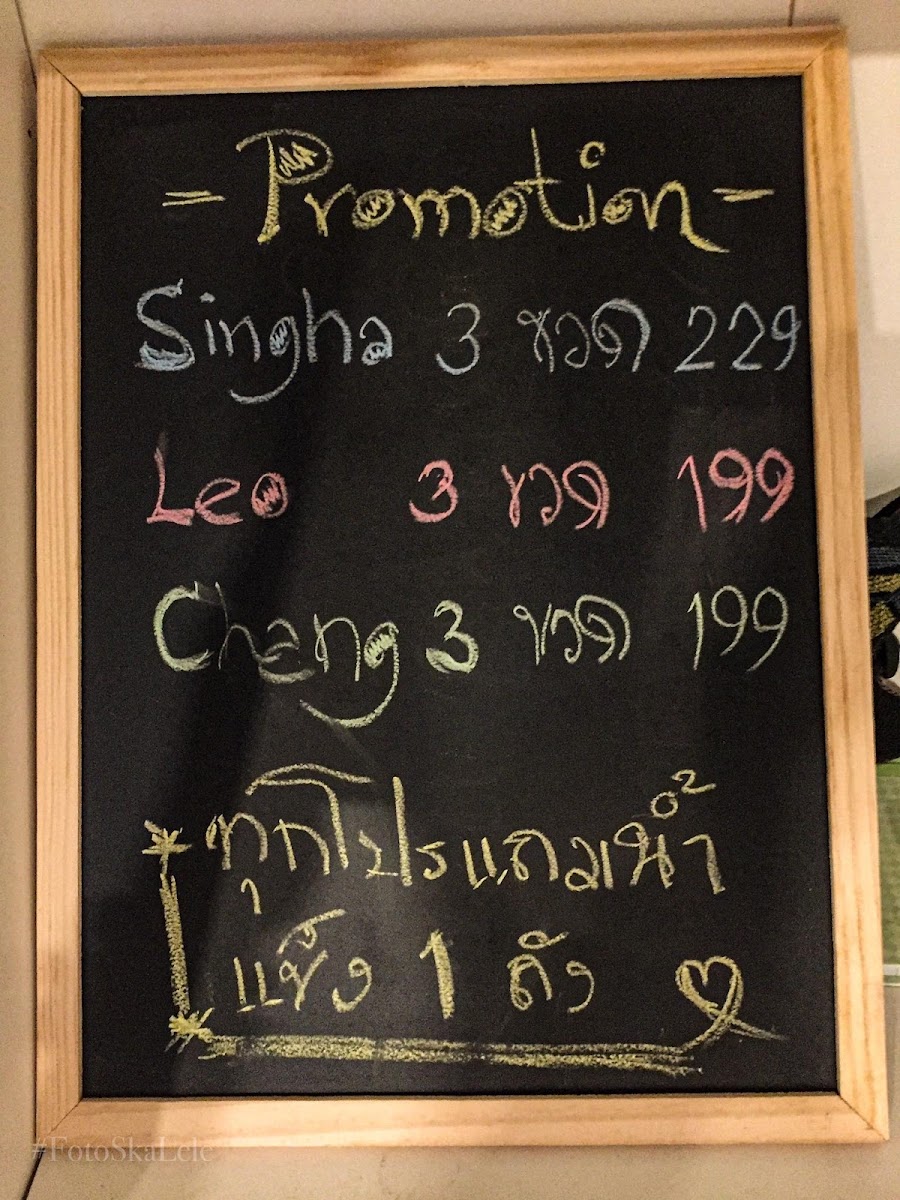 = Promotion =
Singha 3 ขวด 229
Leo 3 ขวด 199
Chang 3 ขวด 199
ทุกโปรแถมน้ำ
แข็ง 1 ถัง
#FotoSkaLele